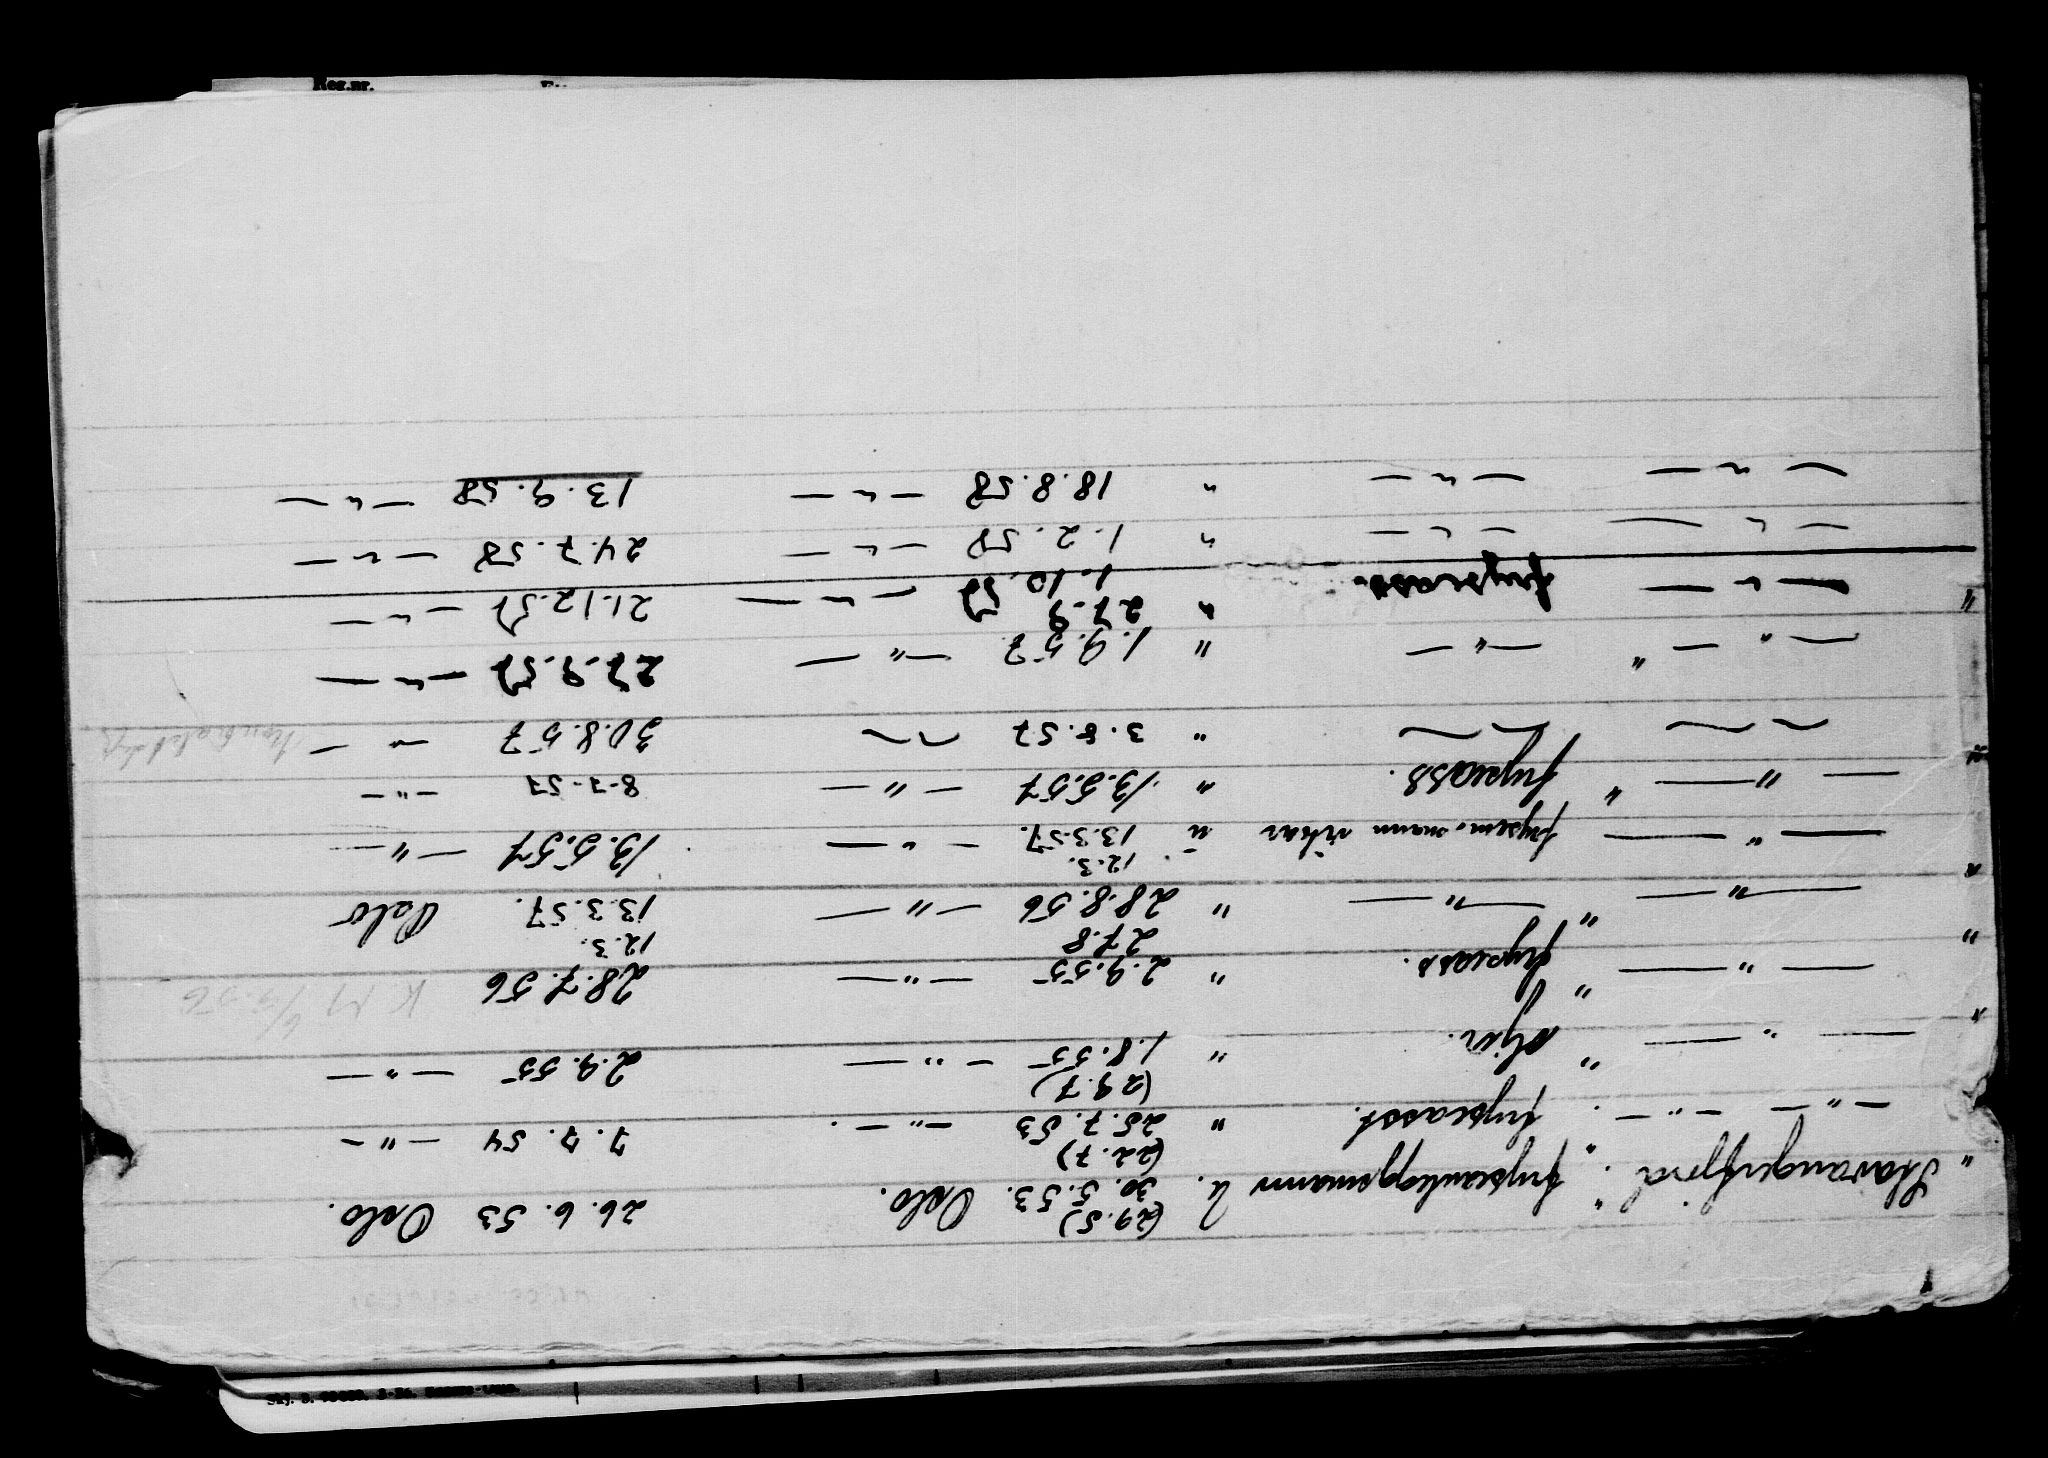 " Stavangerfjord. " fryseanleggsmann U. (29.5) 30.5.53. Oslo. 26.6.53 Oslo.
— " — — " — . fryseasst. " (22.7) 25.7.53 — " — . 7.7.54 — " —
" — " — " stjin. " (29.7) 1.8.55 — " — 2.9.55 — " —
" — " — " fryseass. " 2.9.55 — " — 28.7.56 K M 6/3.56
" — " — " — " — " 27.8 28.8.56 — " — 12.3. 13.3.57. Oslo
— " — frysem.mann vikar u 12.3. 13.3.57. — " — 13.5.57 — " —
" — " — " fryseass. " 13.5.57 — " — 8-7-57 — " —
— " — — " — " 3.8.57 — " — 30.8.57 — " —
— " — " — " — " 1.9.57 — " — 27.9.57 — " —
" — " — fryseass. " 27.9 1.10.57 — " — 21.12.57 — " —
— " — — " — " 1.2.58 — " — 24.7.58 — " —
— " — — " — " 18.8.58 — " — 13.9.58 — " —
Reg.nr.